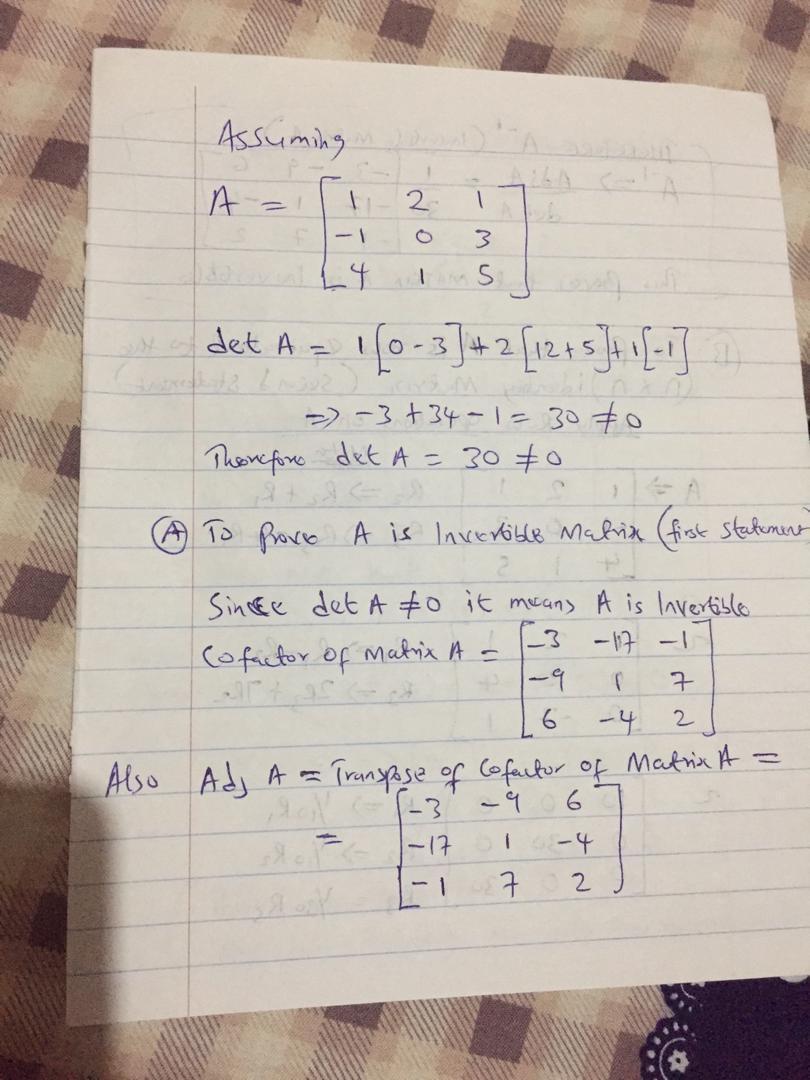 Assuming
A = [ 1 2 1
-1 0 3
4 1 5 ]
det A = 1[0-3]+2[12+5]+1[-1]
=> -3+34-1 = 30 ≠0
Therefore det A = 30 ≠0
(A) To prove A is Invertible Matrix (first statement
Since det A ≠0 it means A is Invertible
Cofactor of Matrix A = [ -3 -17 -1
-9 1 7
6 -4 2 ]
Also Adj A = Transpose of Cofactor of Matrix A =
= [ -3 -9 6
-17 1 -4
-1 7 2 ]